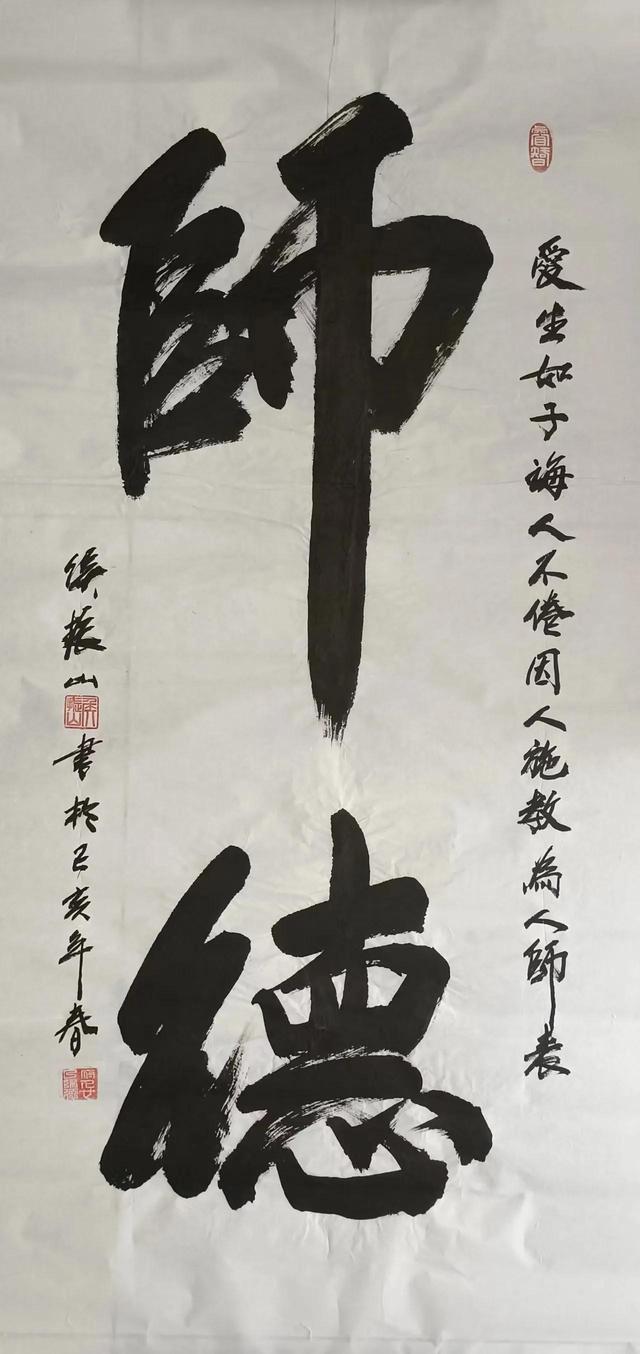 愛生如子誨人不倦因人施教為人師表
師德
侯振山
書於己亥年春